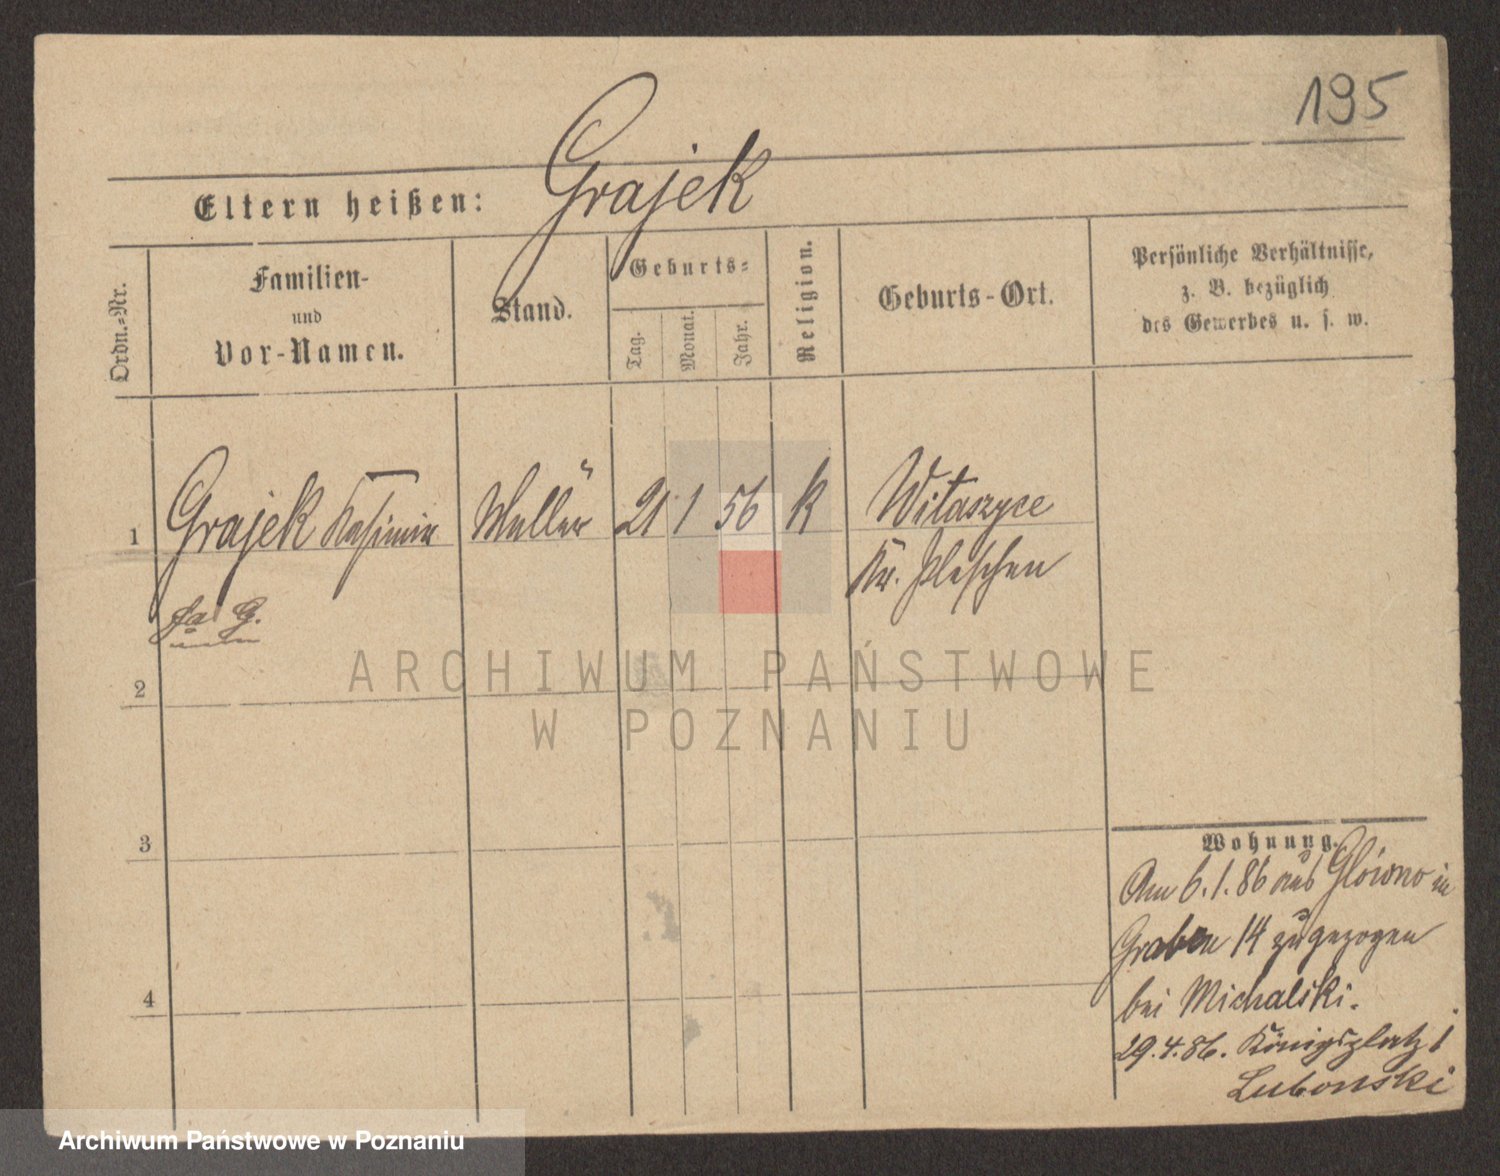 195
Grajek
Eltern heißen:
Ordn.-Nr.
Familien-
und
Vor-Namen.
Stand.
Geburts-
Tag.
Monat.
Jahr.
Religion.
Geburts-Ort.
Persönliche Verhältnisse,
z. B. bezüglich
des Gewerbes u. s. w.
1 Grajek Kasimir Müller 21 1 56 k Witaszyce
Kr. Pleschen
G.
2
ARCHIWUM PAŃSTWOWE
W POZNANIU
3
4
Wohnung.
Am 6.1.86 aus Glówno in
Graben 14 zugezogen
bei Michalski.
29.4.86. Königsplatz 1
Lubonski
Archiwum Państwowe w Poznaniu